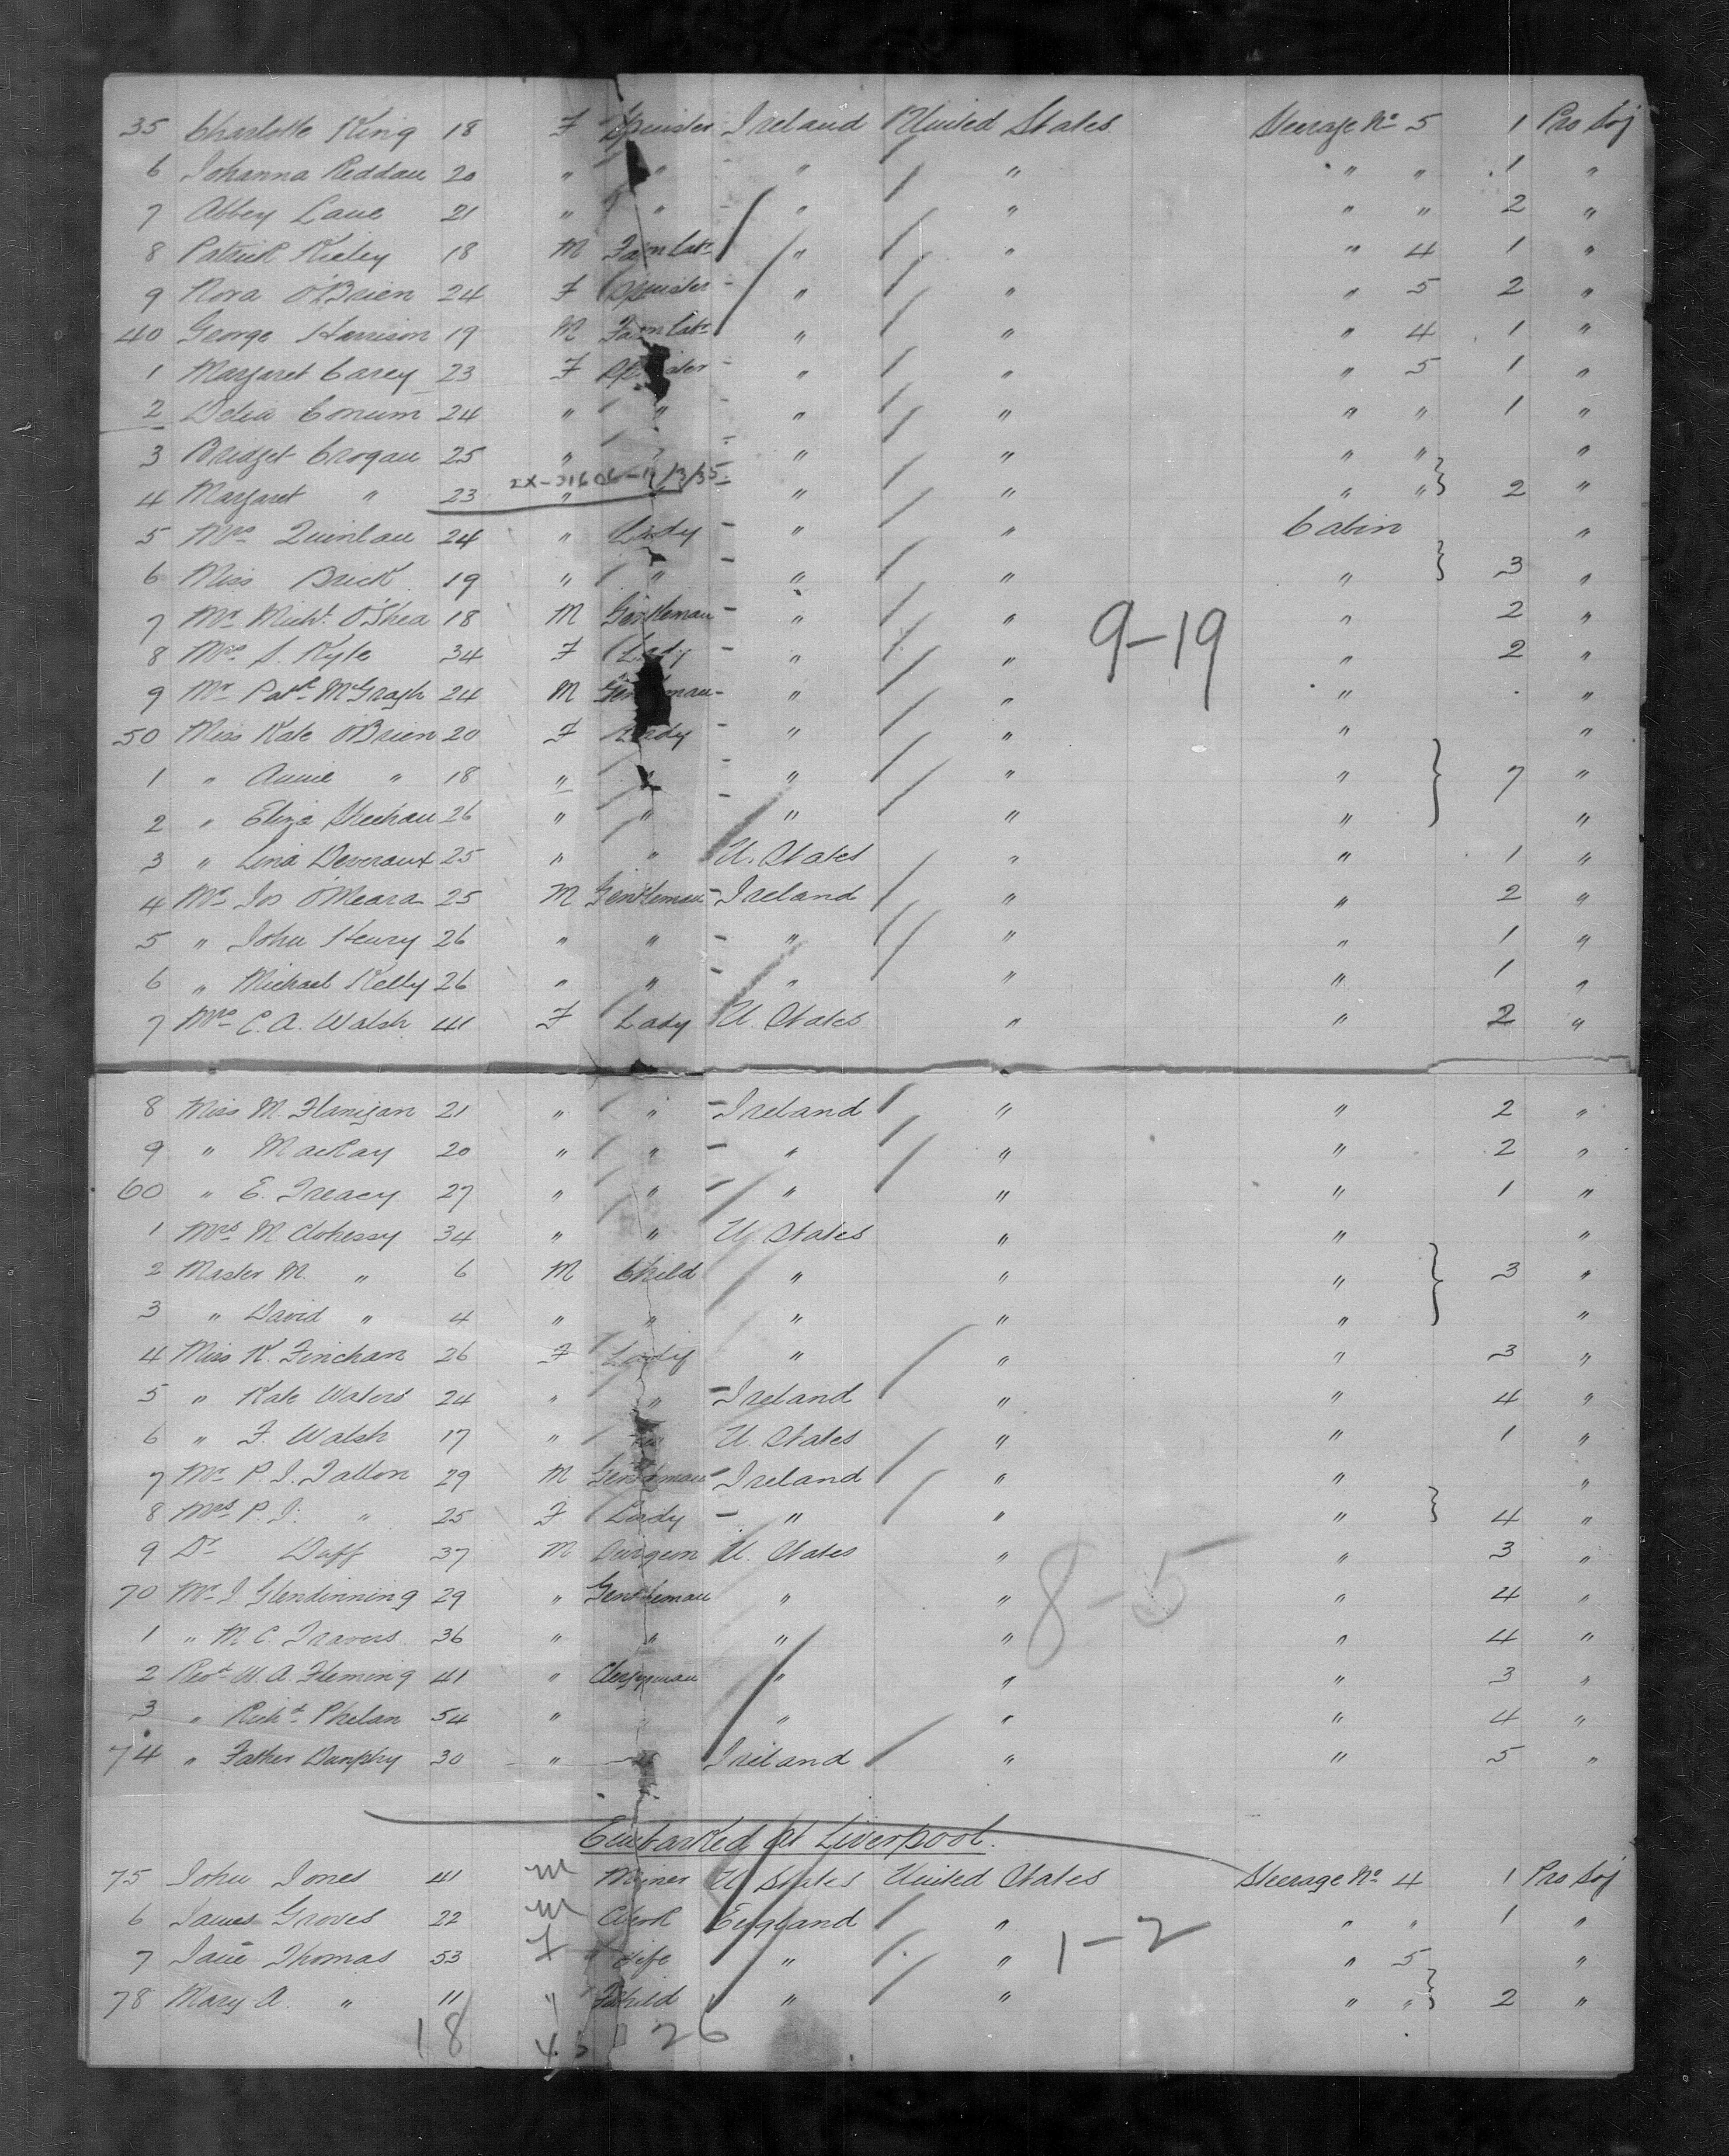 35 Charlotte King 18 F Spinster Ireland United States Steerage No 5 1 Pro Soj
6 Johanna Reddan 20 " " " " " " 1 "
7 Abbey Lane 21 " " " " " " 2 "
8 Patrick Kieley 18 M Farm Labr " " " 4 1 "
9 Nora O'Brien 24 F Spinster " " " 5 2 "
40 George Harrison 19 M Farm Labr " " " 4 1 "
1 Margaret Carey 23 F Spinster " " " 5 1 "
2 Delia Conum 24 " " " " " " 1 "
3 Bridget Crogan 25 " " " " " " "
2X-31606-11/3/35
4 Margaret " 23 " " " " " " } 2 "
5 Mrs Quinlan 24 " Lady " " Cabin "
6 Miss Brick 19 " " " " " } 3 "
7 Mr Michl O'Shea 18 M Gentleman " " " 2 "
9-19
8 Mrs S. Kyle 34 F Lady " " " 2 "
9 Mr Patk McGragh 24 M Gentleman " " " "
50 Miss Kate O'Brien 20 F Lady " " " "
1 " Annie " 18 " " " " " } 7 "
2 " Eliza Sheehan 26 " " " " " "
3 " Lina Deveraux 25 " " U. States " " 1 "
4 Mr Jos O'Meara 25 M Gentleman Ireland " " 2 "
5 " John Henry 26 " " " " " 1 "
6 " Michael Kelly 26 " " " " " 1 "
7 Mrs C. A. Walsh 41 F Lady U. States " " 2 "
8 Miss M. Flanigan 21 " " Ireland " " 2 "
9 " MacKay 20 " " " " " 2 "
60 " E. Treacy 27 " " " " " 1 "
1 Mrs M. Clohessy 34 " " U. States " " "
2 Master M. " 6 M Child " " " } 3 "
3 " David " 4 " " " " " "
4 Miss K. Finchan 26 F Lady " " " 3 "
5 " Kate Waters 24 " " Ireland " " 4 "
6 " F. Walsh 17 " " U. States " " 1 "
7 Mr P. J. Tallon 29 M Gentleman Ireland " " "
8 Mrs P. J. " 25 F Lady " " " } 4 "
9 Dr Duff 37 M Surgeon U. States " " 3 "
8-5
70 Mr J. Glendinning 29 " Gentleman " " " 4 "
1 " M. C. Travers 36 " " " " " 4 "
2 Revd W. A. Fleming 41 " Clergyman " " " 3 "
3 " Richd Phelan 54 " " " " 4 "
74 " Father Dunphy 30 " " Ireland " " 5 "
Embarked at Liverpool.
75 John Jones 41 M Miner U States United States Steerage No 4 1 Pro Soj
6 James Groves 22 M Clerk England " " " 1 "
7 Jane Thomas 53 F Wife " " " 5 "
1-2
78 Mary A. " 11 " Child " " " " } 2 "
18 26